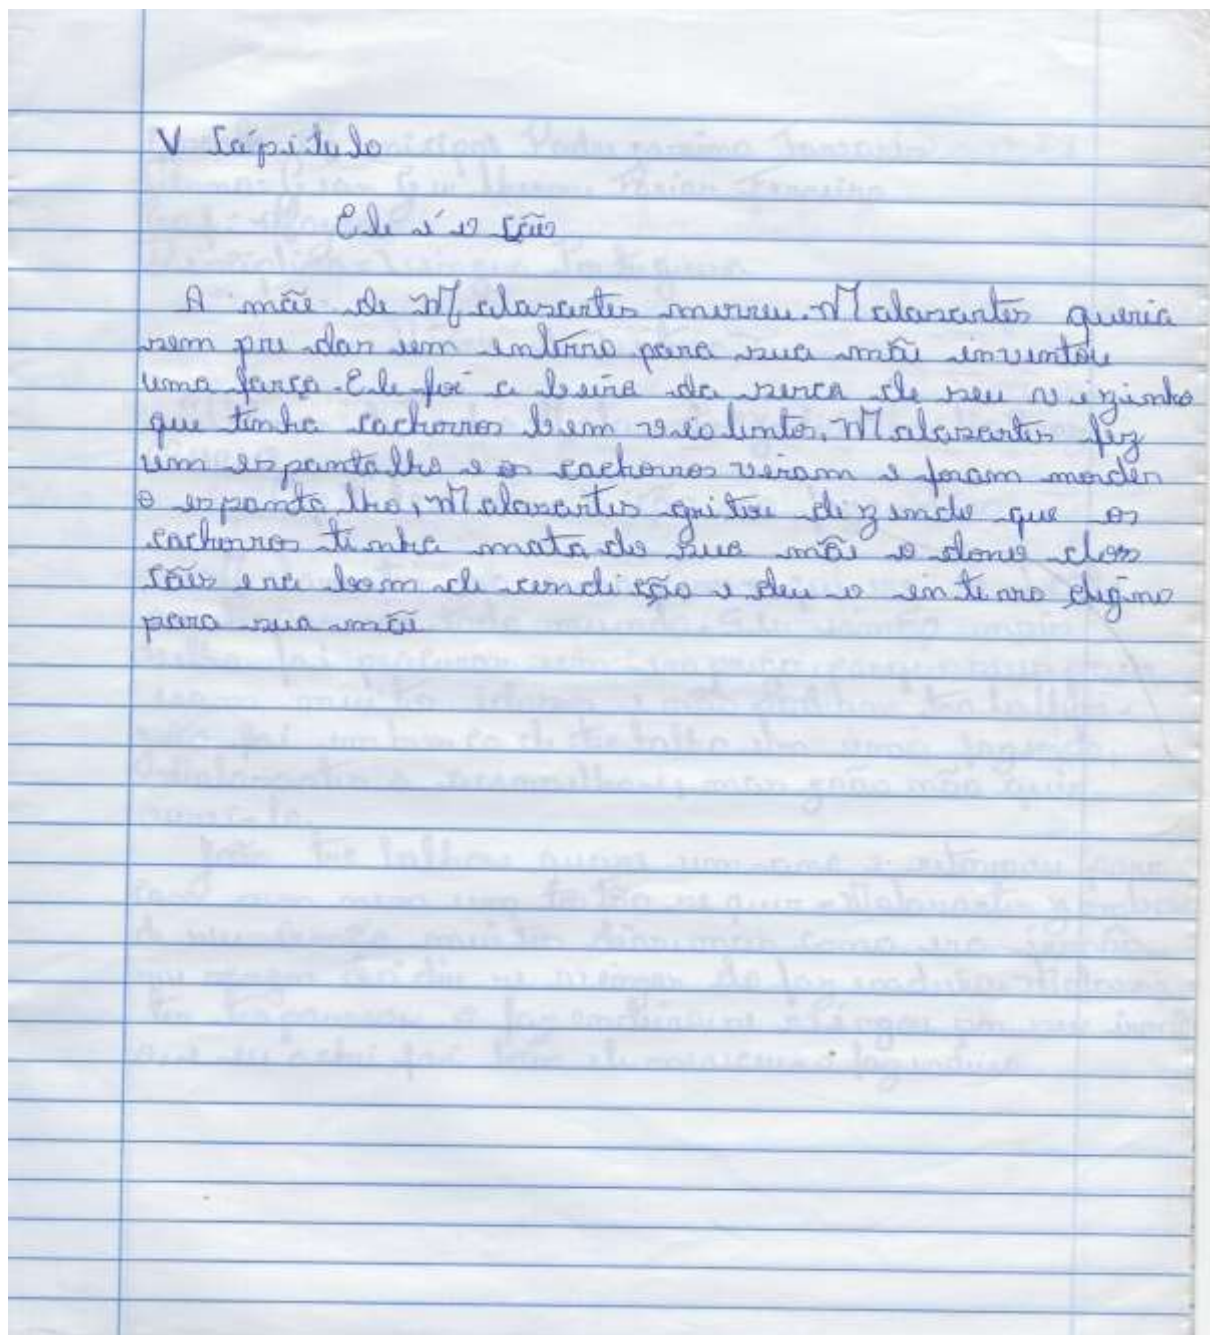 V Cápitulo
Ele é o cão
A mãe de Malasartes morreu. Malasartes queria
sem pre dar um enterro para sua mãe inventou
uma farça. Ele foi a beira da serca de seu vizinho
que tinha cachorros bem violentos, Malasartes fez
um espantalho e os cachorros viram e foram morder
o espanta lho, Malasartes gritou dizendo que os
cachorros tinha mata do sua mãe o dono dos
cães era bom de condição e deu o en terro digno
para sua mãe